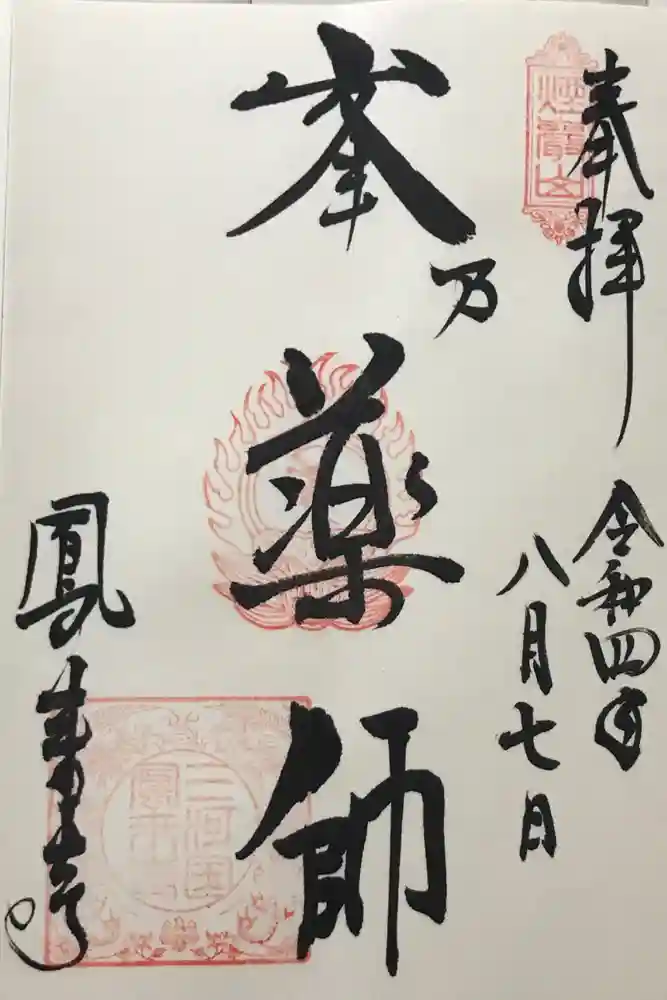 奉拝
令和四年
八月七日
煙巌山
峯乃
薬師
鳳来寺
三河国
鳳来寺